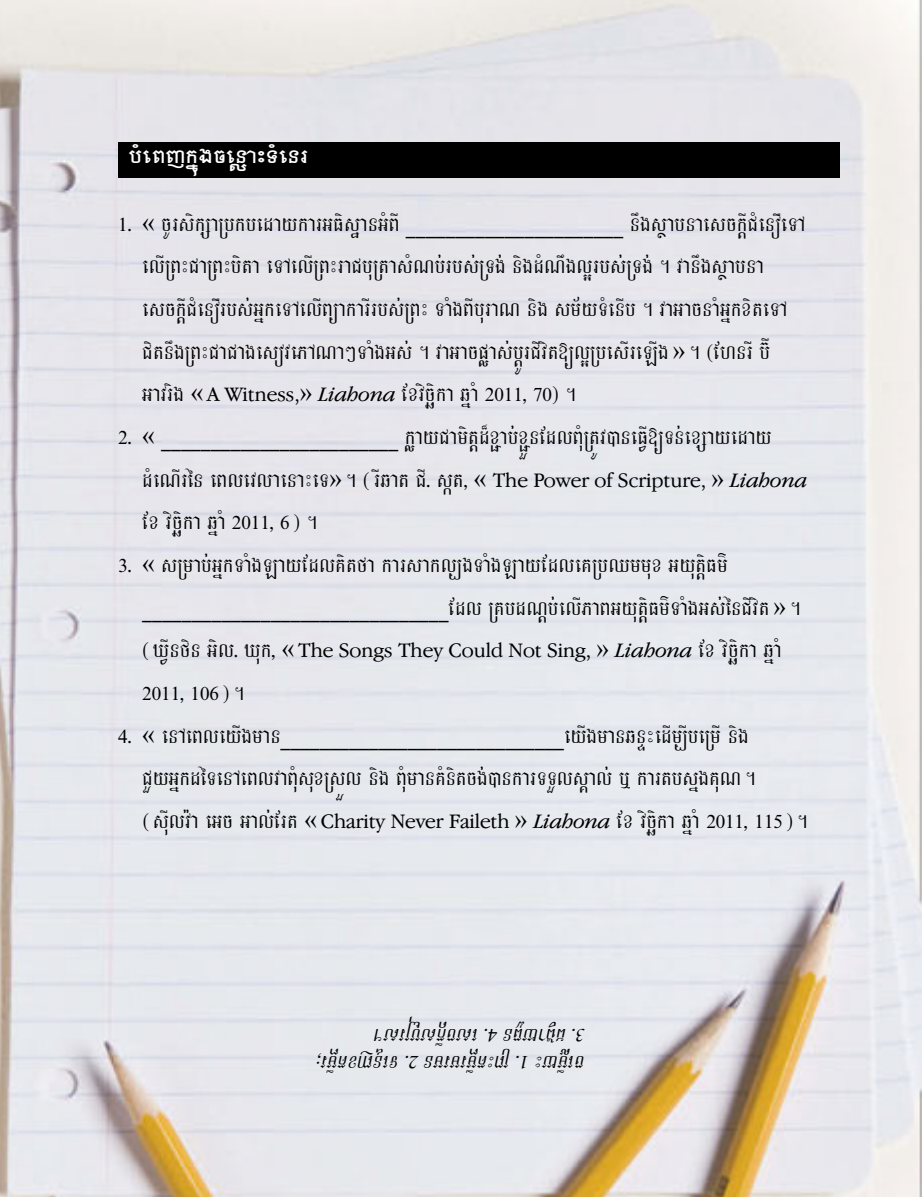 បំពេញក្នុងចន្លោះទំនេរ
1. « ចូរសិក្សាប្រកបដោយការអធិស្ឋានអំពី ______________________ នឹងស្ថាបនាសេចក្ដីជំនឿទៅ
លើព្រះជាព្រះបិតា ទៅលើព្រះរាជបុត្រាសំណប់របស់ទ្រង់ និងដំណឹងល្អរបស់ទ្រង់ ។ វានឹងស្ថាបនា
សេចក្ដីជំនឿរបស់អ្នកទៅលើព្យាការីរបស់ព្រះ ទាំងពីបុរាណ និង សម័យទំនើប ។ វាអាចនាំអ្នកខិតទៅ
ជិតនឹងព្រះជាជាងសៀវភៅណាៗទាំងអស់ ។ វាអាចផ្លាស់ប្ដូរជីវិតឱ្យល្អប្រសើរឡើង » ។ (ហែនរី ប៊ី
អាវរិង «A Witness,» Liahona ខែវិច្ឆិកា ឆ្នាំ 2011, 70) ។
2. « ________________________ ក្លាយជាមិត្តដ៏ខ្ជាប់ខ្ជួនដែលពុំត្រូវបានធ្វើឱ្យទន់ខ្សោយដោយ
ដំណើរនៃ ពេលវេលានោះទេ» ។ ( រីឆាត ជី. ស្កត, « The Power of Scripture, » Liahona
ខែ វិច្ឆិកា ឆ្នាំ 2011, 6 ) ។
3. « សម្រាប់អ្នកទាំងឡាយដែលគិតថា ការសាកល្បងទាំងឡាយដែលគេប្រឈមមុខ អយុត្តិធម៌
_______________________________ដែល គ្របដណ្ដប់លើភាពអយុត្តិធម៌ទាំងអស់នៃជីវិត » ។
( ឃ្វីនថិន អិល. ឃុក, « The Songs They Could Not Sing, » Liahona ខែ វិច្ឆិកា ឆ្នាំ
2011, 106 ) ។
4. « នៅពេលយើងមាន_____________________________យើងមានឆន្ទះដើម្បីបម្រើ និង
ជួយអ្នកដទៃនៅពេលវាពុំសុខស្រួល និង ពុំមានគំនិតចង់បានការទទួលស្គាល់ ឬ ការតបស្នងគុណ ។
( ស៊ីលវ៉ា អេច អាល់រែត «Charity Never Faileth » Liahona ខែ វិច្ឆិកា ឆ្នាំ 2011, 115 ) ។
ចម្លើយ: 1. 2.
3. 4.